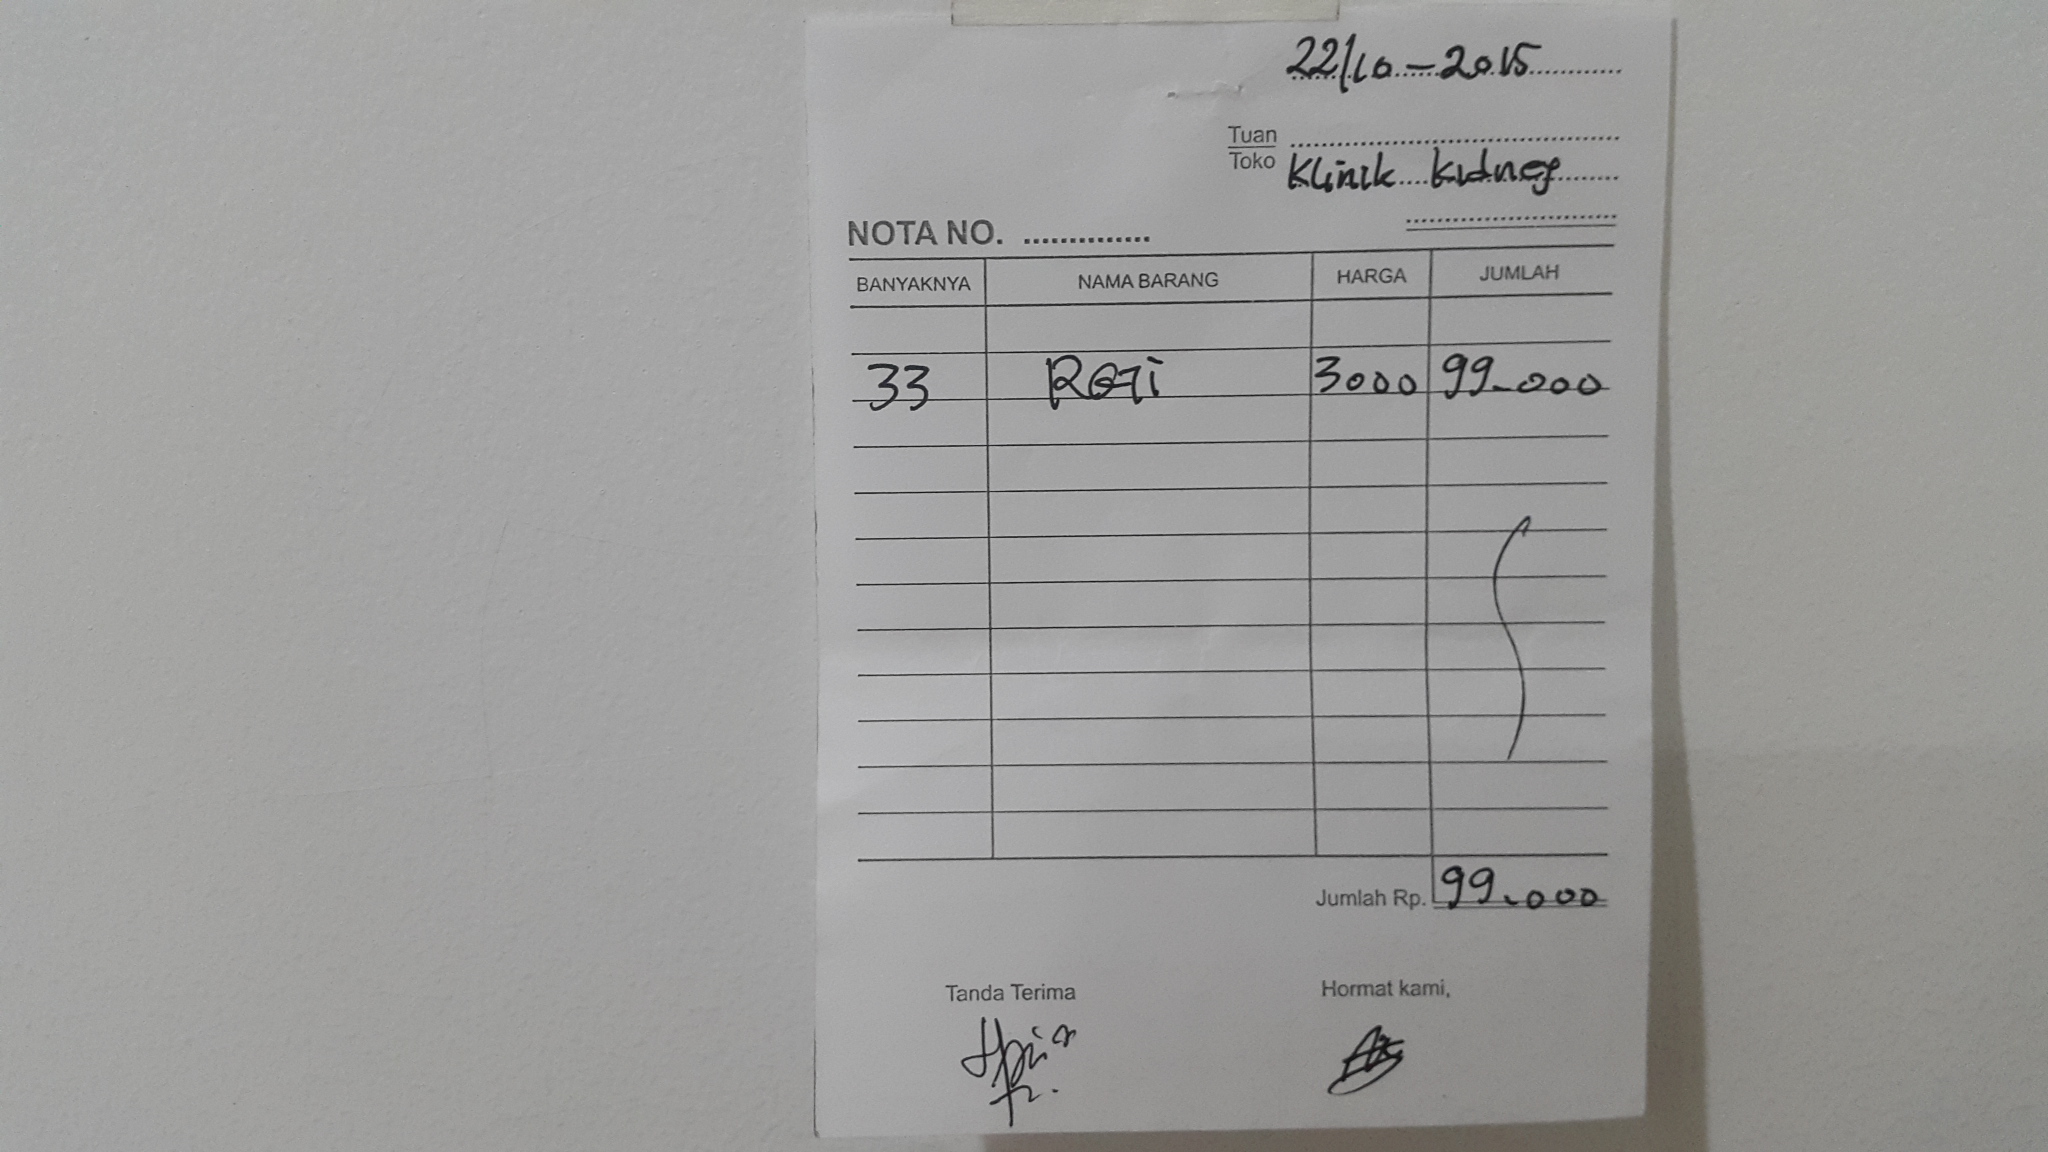 22/10-2015
Tuan
Toko Klinik Kidney
NOTA NO. ...............
BANYAKNYA NAMA BARANG HARGA JUMLAH
33 Roti 3000 99.000
Jumlah Rp. 99.000
Tanda Terima Hormat kami,